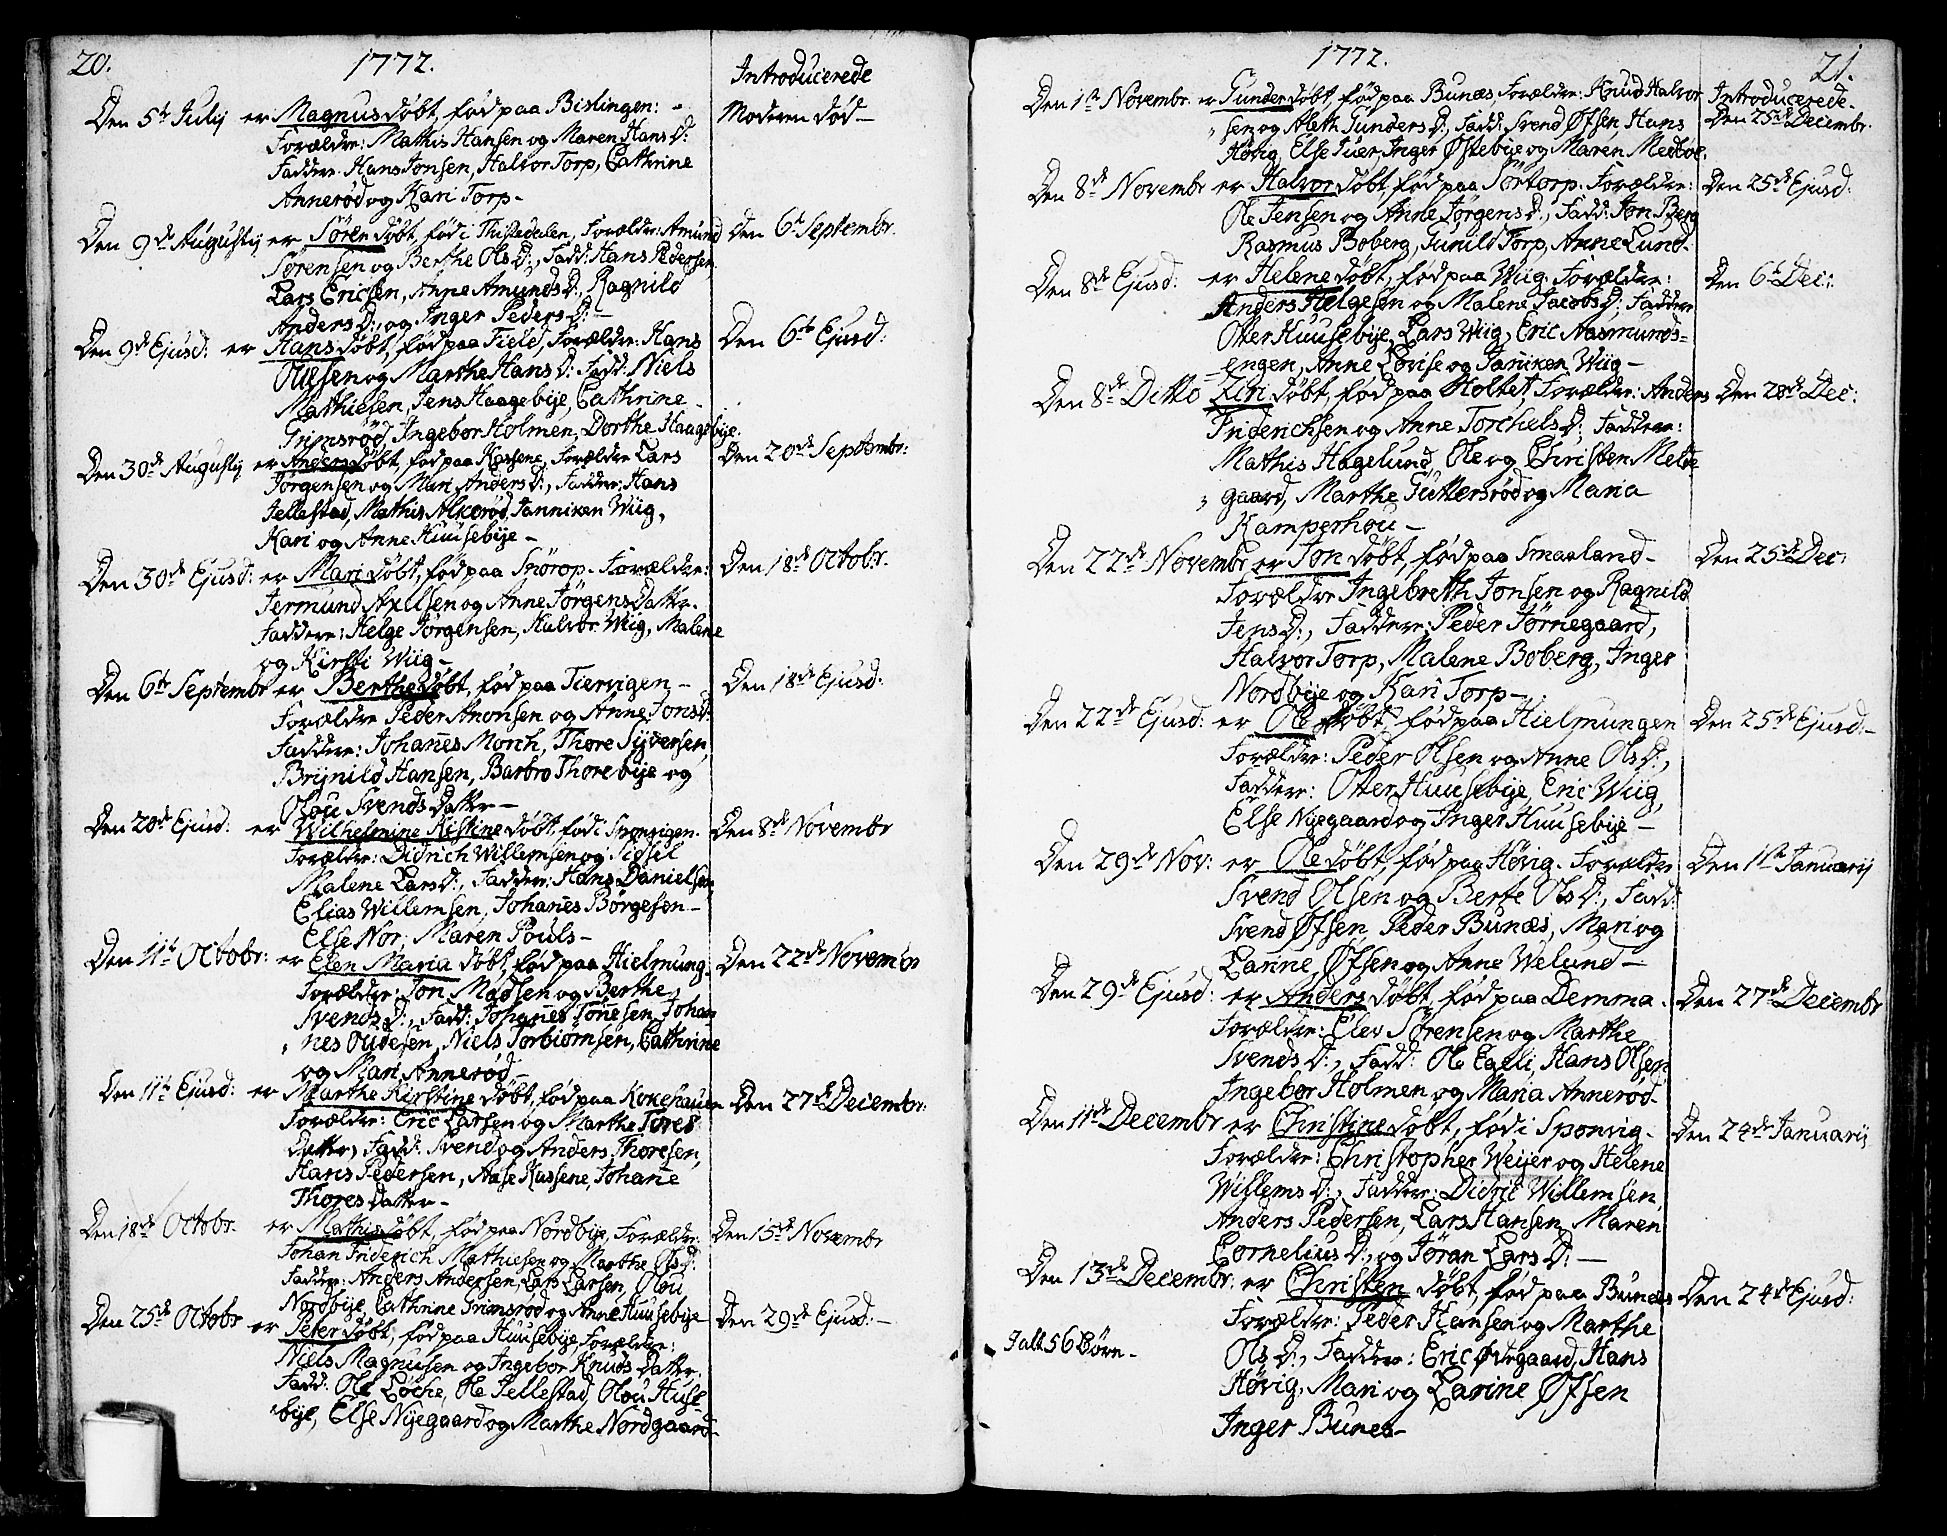 20. 1772. Introducerede
Den 5te Julij er Magnus døbt, fød paa Bislingen: Moderen død
Forældre: Mathis Hansen og Maren Hans D:
Faddere. Hans Jonsen, Halvor Torp, Cathrine
Annerød og Kari Torp-
Den 9de Augustij er Sören døbt, fød i Thistedalen, Forældre: Amund Den 6te Septembr.
Sørensen og Berthe Ols D:, Fadd: Hans Pedersen
Lars Ericsen, Anne Amunds D:, Ragnild
Anders D:, og Inger Peders D:-
Den 9de Ejusd: er Hans døbt, fød paa Field, Forældre: Hans Den 6te Ejusd:
Olsen og Marthe Hans D: Fadd: Niels
Mathiesen, Jens Haagebije, Cathrine
Grimsrød, Ingebor Holmen, Dorthe Haagebije.
Den 30de Augustij er Anders døbt, fød paa Kassene, Forældre Lars Den 20de Septembr:
Jörgensen og Mari Anders D:, Faddere; Hans
Jellestad, Mathis Alkerød, Janniken Wiig,
Kari og Anne Huusebije-
Den 30de Ejusd: er Mari døbt, fød paa Snörop. Forældre: Den 18de Octobr.
Jermund Axelsen og Anne Jørgens Dattr.
Faddere: Helge Jörgensen, Halvor Wiig, Malene
og Kirsti Wiig-
Den 6te Septembr er Berthe døbt, fød paa Tiervigen- Den 18de Ejusd:
Forældre Peder Anonsen og Anne Jons D:
Faddere: Johanes Morch, Thore Sijversen,
Brijnild Hansen, Barbro Thorebije og
Olou Svends Dattr-
Den 20de Ejusd: er Wilhelmine Kistine døbt, fød i Sponvigen. Den 8de Novembr
Forældre: Didrich Willemsen og Sidsel
Malene Lars D:, Faddere: Hans Danielsen,
Elias Willemsen, Johanes Børgesen-
Else Nor, Maren Pouls-
Den 11te Octobr: er Elen Maria døbt, fød paa Hielmung. Den 22de Novembr
Forældre: Jon Madsen og Berthe
Svends D:, Fadd: Johanes Tönesen, Johan
nes Oudesen, Niels Torbiörnsen, Cathrine
og Mari Annerød-
Den 11te Ejusd: er Marthe Kirstine døbt, fød paa Kokehauen Den 27de Decembr:
Forældre: Eric Larsen og Marthe Tores
Dattr, Fadd: Svend og Anders Thoresen,
Hans Pedersen, Aase Kassene, Johane
Thores Dattr-
Den 18de Octobr. er Mathis døbt, fød paa Nordbije, Forældre: Den 15de Novembr
Johan Friderich Mathiesen og Marthe Ols D:
Faddere: Anders Andersen, Lars Larsen, Olou
Nordbije, Cathrine Grimsrød og Anne Huusebije
Den 25de Octobr er Peter døbt, fød paa Huusebije, Forældre: Den 29de Ejusd:-
Niels Magnusen og Ingebor Knuds Dattr:
Fadd: Ole Løche, Ole Jellestad, Olou Huse
bije, Else Nijegaard og Marthe Nordgaard
1772. 21.
Den 1te Novembr. er Gunder døbt, fød paa Bunæs, Forældre: Knud Halvor Introducerede.
sen og Aleth Gunders D:, Fadd: Svend Øfsen, Hans Den 25de Decembr.
Høvig, Else Tuer, Inger Østebije og Maren Medboe.
Den 8de Novembr er Halvor døbt, fød paa Sörtorp. Forældre: Den 25de Ejusd:
Ole Jensen og Anne Jørgens D:, Fadd: Jon Berg
Rasmus Boberg, Gunild Torp, Anne Lund.
Den 8de Ejusd: er Helene døbt, fød paa Wiig. Forældre: Den 6te Dec:
Anders Helgesen og Malene Jacobs D:, Faddere
Otter Huusebije, Lars Wiig, Eric Aasmunds=
=engen, Anne Lovise og Janiken Wiig-
Den 8de Ditto Siri døbt, fød paa Holtet, Forældre: Anders Den 28de Dec:
Friderichsen og Anne Torchels D:, Faddere:
Mathis Hagelund, Ole og Christen Melle
gaard, Marthe Guttersrød og Maria
Kamperhou-
Den 22de Novembr er Jon døbt, fød paa Smaaland- Den 25de Dec:
Forældre Ingebreth Jonsen og Ragnild
Jens D:, Faddere, Peder Törnegaard,
Halvor Torp, Malene Boberg, Inger
Nordbije og Kari Torp-
Den 22de Ejusd: er Ole døbt, fød paa Hielmungen Den 25de Ejusd:-
Forældre: Peder Olsen og Anne Ols D:,
Faddere: Otter Huusebije, Eric Wiig,
Else Nijegaard og Inger Huusebije-
Den 29de Nov: er Ole døbt, fød paa Høvig. Forældre Den 1te Januarij
Svend Olsen og Berte Ols D:, Fadd:
Svend Øfsen, Peder Bunæs, Mari og
Larine, Øfsen og Anne Welund-
Den 29de Ejusd: er Anders døbt, fød paa Demma. Den 27de Decembr
Forældre: Elev Sørensen og Marthe
Svends D:, Fadd: Ole Egeli, Hans Olsen
Ingebor Holmen og Maria Annerød-
Den 11de Decembr er Christine døbt, fød i Sponvig. Den 24de Januarij
Forældre: Christopher Weijer og Helene
Willems D:, Faddere: Didric Willemsen,
Anders Pedersen, Lars Hansen, Maren
Cornelius D:, og Jøran Lars D:-
Den 13de Decembr: er Christen døbt, fød paa Bunæs Den 24de Ejusd:
Forældre: Peder Hansen og Marthe
Jalt 56 Børn-
Ols D:, Faddere: Eric Ødegaard, Hans
Høvig, Mari og Larine Øfsen
Inger Bunes-